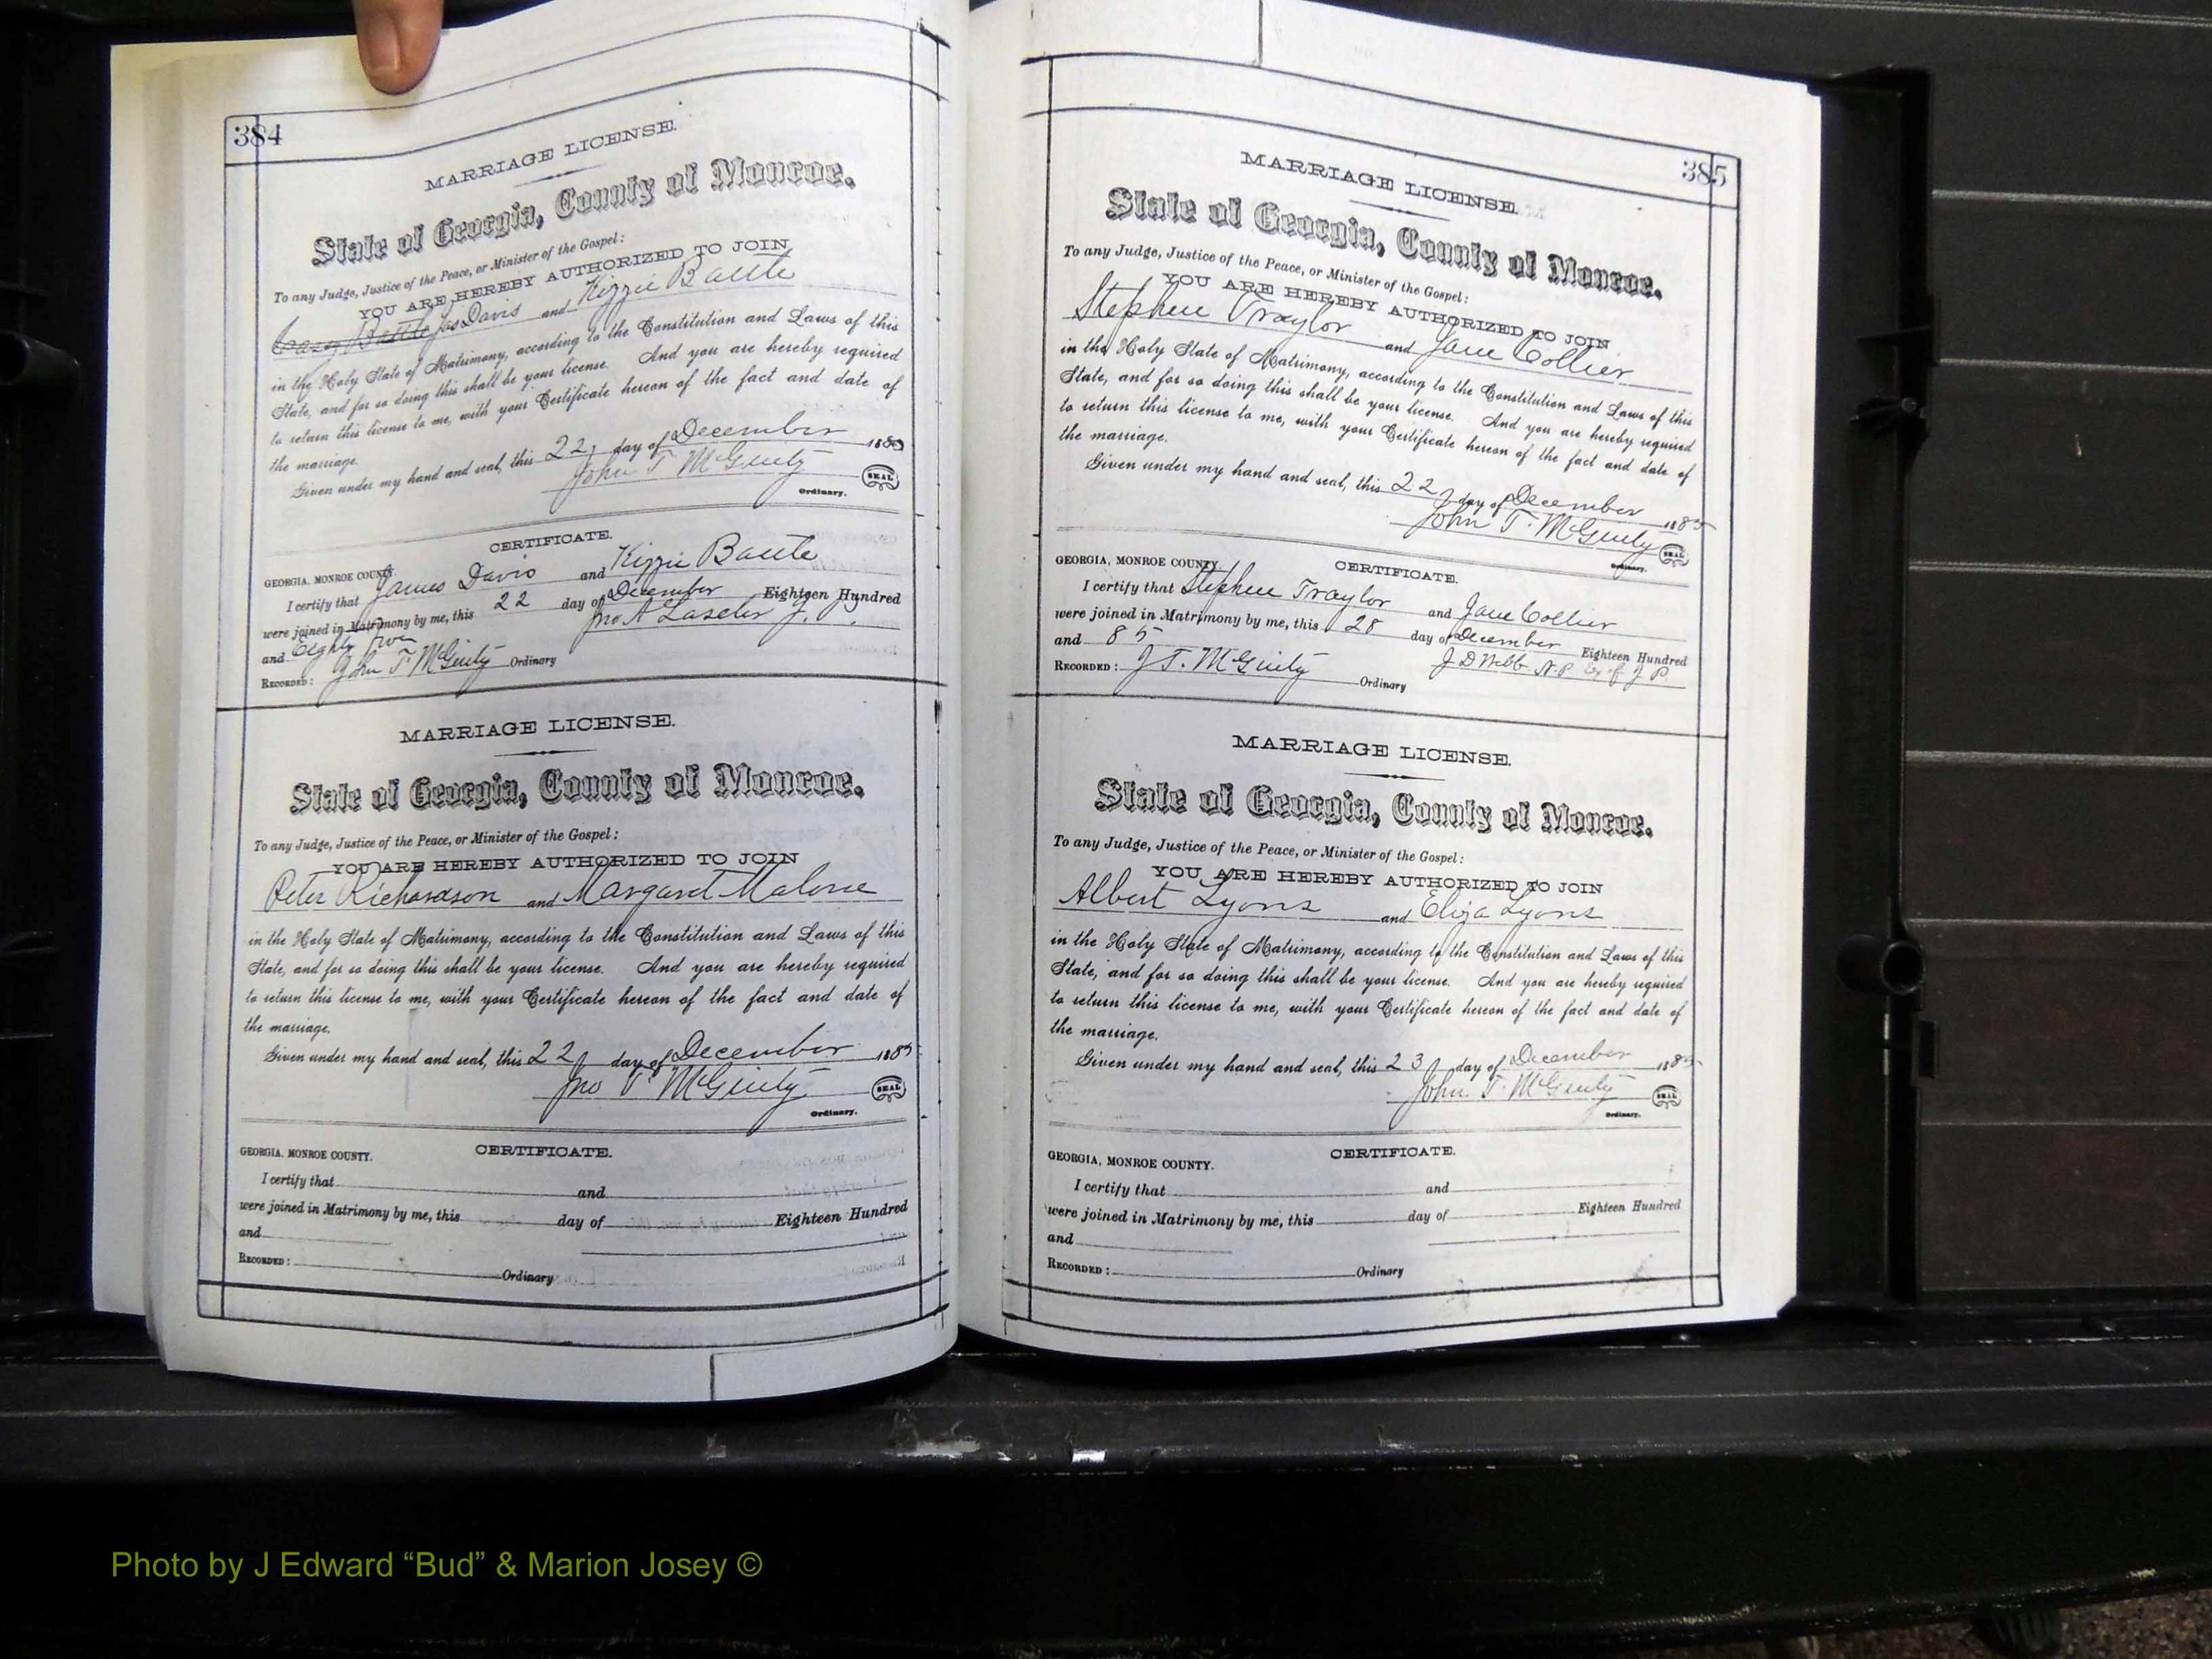 384
MARRIAGE LICENSE.
State of Georgia, County of Monroe.
To any Judge, Justice of the Peace, or Minister of the Gospel:
YOU ARE HEREBY AUTHORIZED TO JOIN
Jas Davis and Kizzie Battle
in the Holy State of Matrimony, according to the Constitution and Laws of this
State, and for so doing this shall be your license. And you are hereby required
to return this license to me, with your Certificate hereon of the fact and date of
the marriage.
Given under my hand and seal, this 22 day of December 1885
John T McGinty SEAL
Ordinary.
CERTIFICATE.
GEORGIA, MONROE COUNTY.
I certify that James Davis and Kizzie Battle
were joined in Matrimony by me, this 22 day of December Eighteen Hundred
and Eighty five Jno A Laseter J. P.
RECORDED: John T. McGinty Ordinary
MARRIAGE LICENSE.
State of Georgia, County of Monroe.
To any Judge, Justice of the Peace, or Minister of the Gospel:
YOU ARE HEREBY AUTHORIZED TO JOIN
Peter Richardson and Margaret Malone
in the Holy State of Matrimony, according to the Constitution and Laws of this
State, and for so doing this shall be your license. And you are hereby required
to return this license to me, with your Certificate hereon of the fact and date of
the marriage.
Given under my hand and seal, this 22 day of December 1885
Jno T. McGinty SEAL
Ordinary.
CERTIFICATE.
GEORGIA, MONROE COUNTY.
I certify that and
were joined in Matrimony by me, this day of Eighteen Hundred
and
RECORDED: Ordinary
385
MARRIAGE LICENSE.
State of Georgia, County of Monroe.
To any Judge, Justice of the Peace, or Minister of the Gospel:
YOU ARE HEREBY AUTHORIZED TO JOIN
Stephen Traylor and Jane Collier
in the Holy State of Matrimony, according to the Constitution and Laws of this
State, and for so doing this shall be your license. And you are hereby required
to return this license to me, with your Certificate hereon of the fact and date of
the marriage.
Given under my hand and seal, this 22 day of December 1885
John T. McGinty SEAL
Ordinary.
CERTIFICATE.
GEORGIA, MONROE COUNTY.
I certify that Stephen Traylor and Jane Collier
were joined in Matrimony by me, this 28 day of December Eighteen Hundred
and 85 J D Webb N.P. Ex of J P
RECORDED: J T. McGinty Ordinary
MARRIAGE LICENSE.
State of Georgia, County of Monroe.
To any Judge, Justice of the Peace, or Minister of the Gospel:
YOU ARE HEREBY AUTHORIZED TO JOIN
Albert Lyons and Eliza Lyons
in the Holy State of Matrimony, according to the Constitution and Laws of this
State, and for so doing this shall be your license. And you are hereby required
to return this license to me, with your Certificate hereon of the fact and date of
the marriage.
Given under my hand and seal, this 23 day of December 1885
John T. McGinty SEAL
Ordinary.
CERTIFICATE.
GEORGIA, MONROE COUNTY.
I certify that and
were joined in Matrimony by me, this day of Eighteen Hundred
and
RECORDED: Ordinary
Photo by J Edward “Bud” & Marion Josey ©